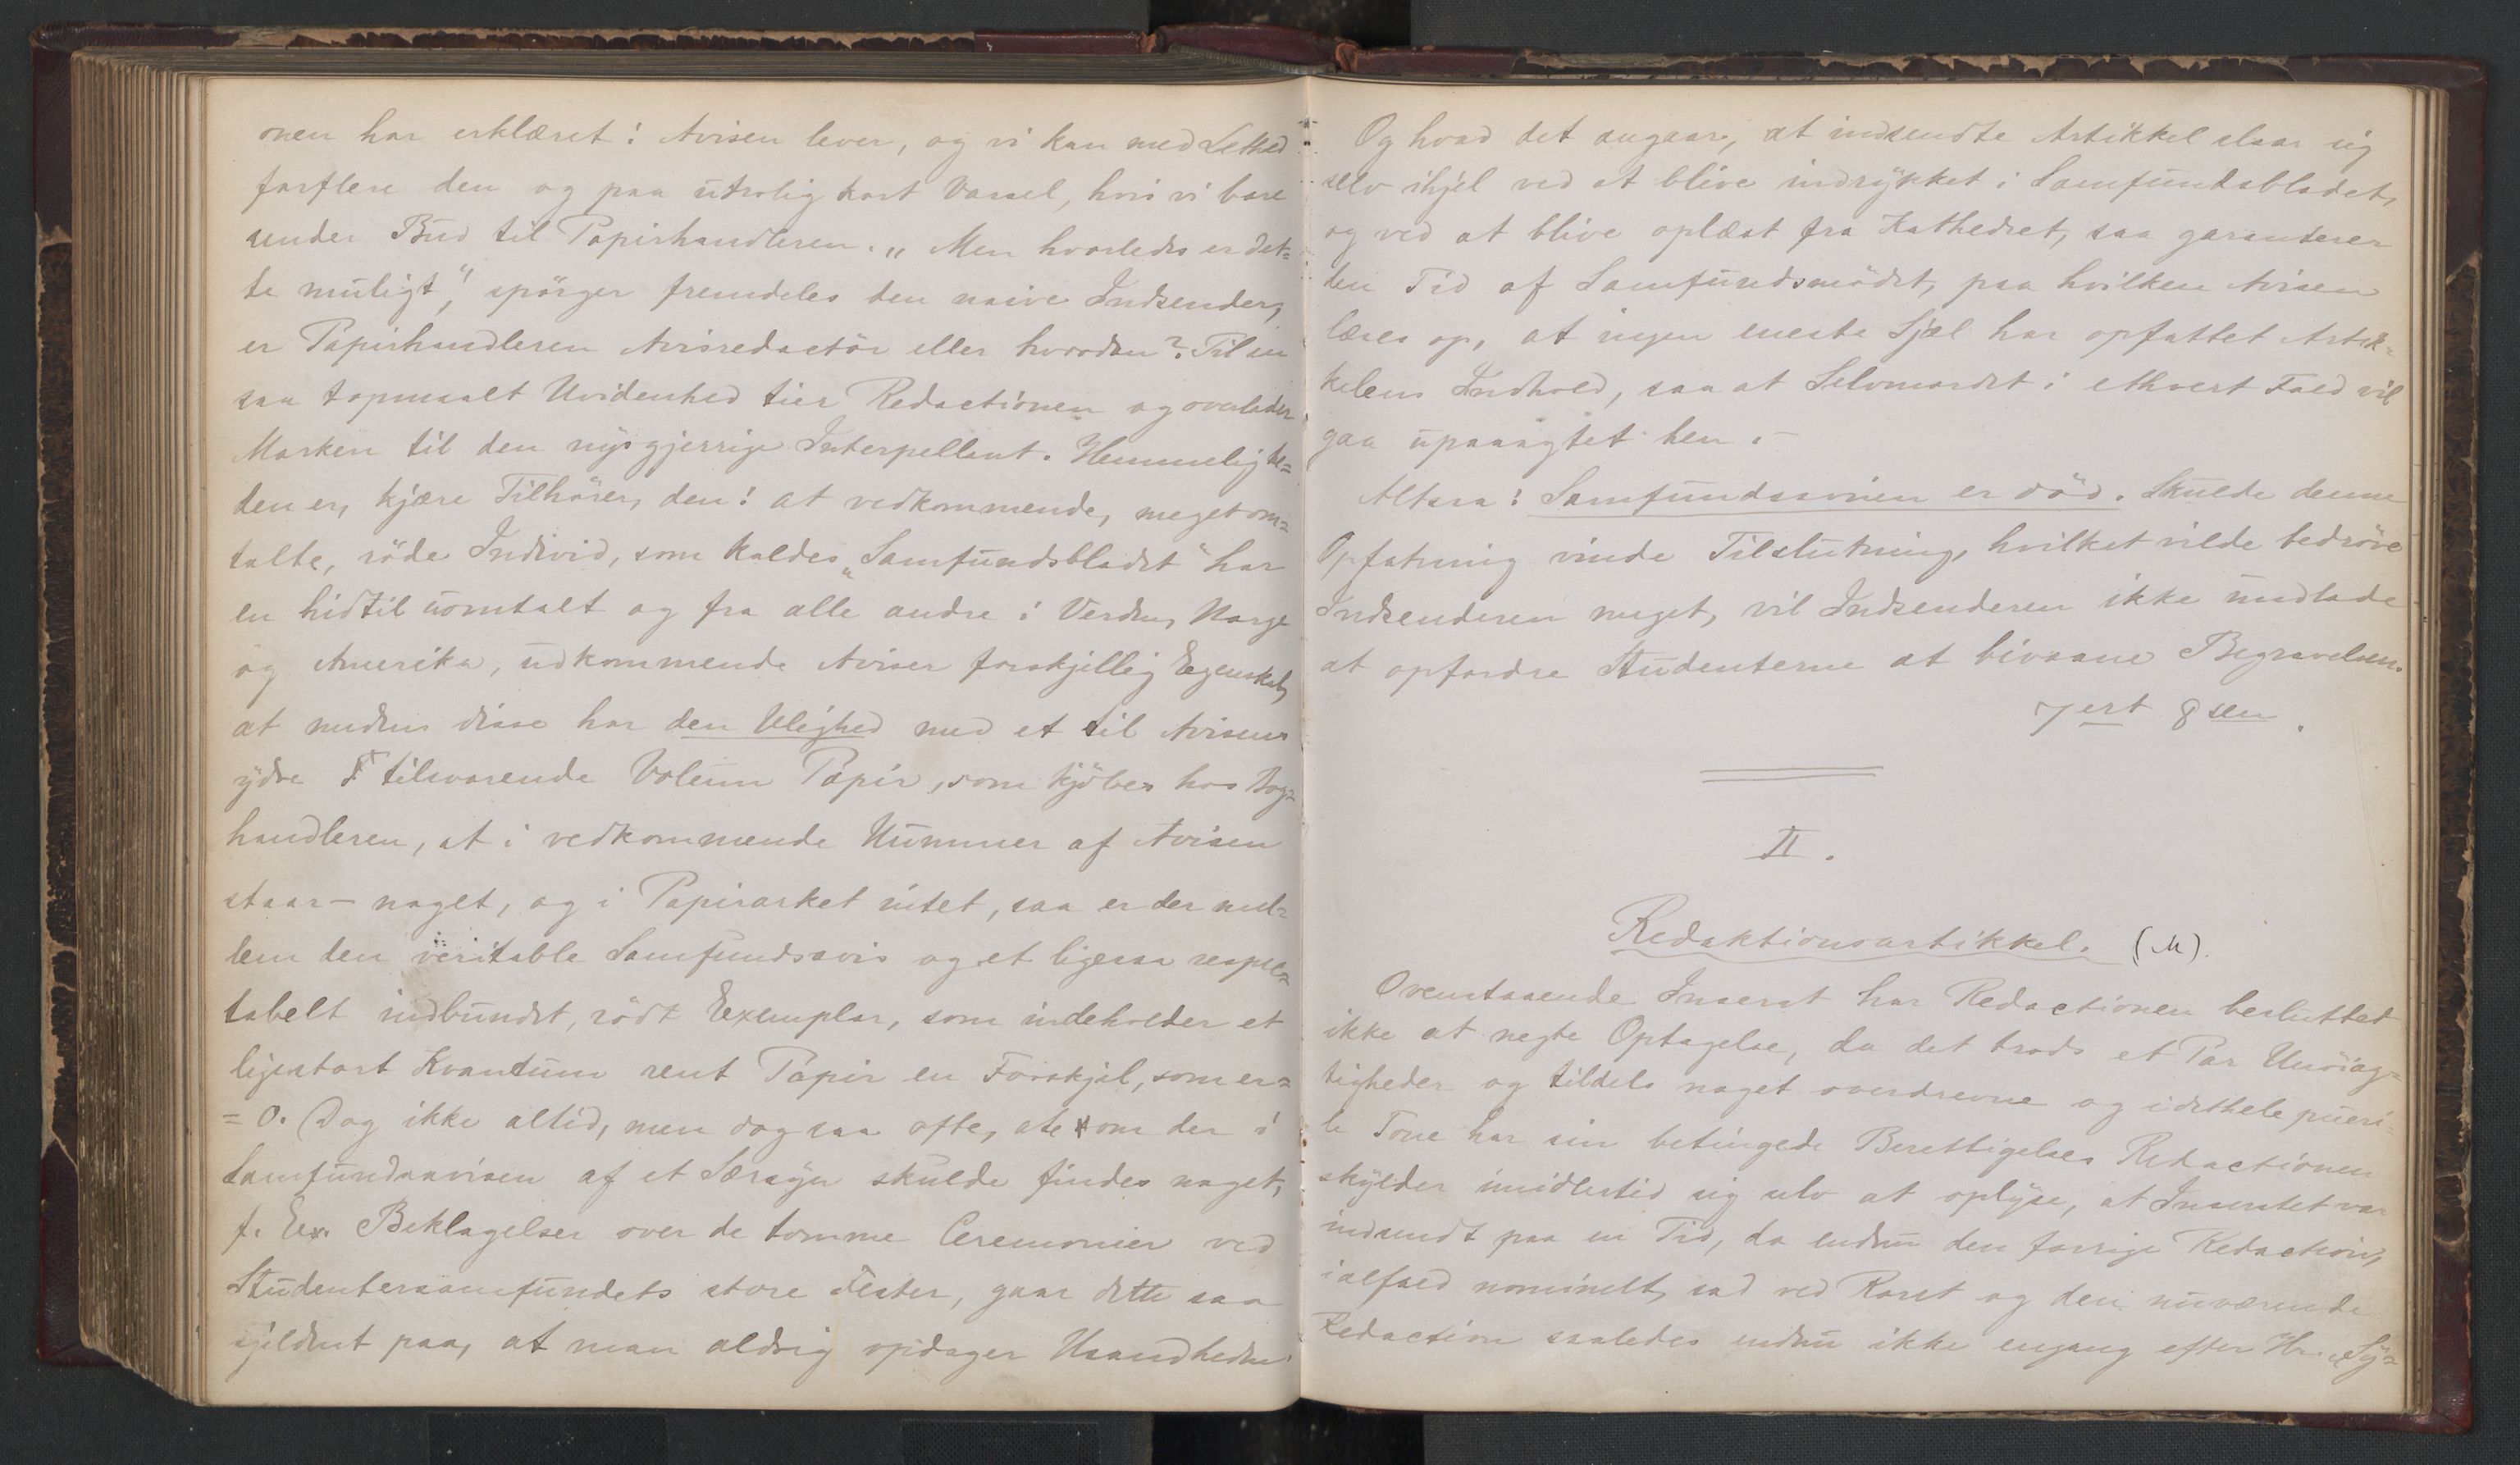 onen har erklæret: Avisen lever, og vi kan med Lethed
forflere den og paa utrolig kort Varsel, hvis vi bare
sender Bud til Papirhandleren. „Men hvorledes er det-
te muligt“, spörger fremdeles den naive Indsender,
er Papirhandleren Avisredactör eller hvordan? Til en
saa topmaalt Uvidenhed tier Redactionen og overlader
Marken til den nysgjerrige Interpellant. Hemmelighe=
den er, kjære Tilhörer, den: at vedkommende, meget om=
talte, röde Individ, som kaldes „Samfundsbladet“ har
en hidtil uomtalt og fra alle andre i Verden, Norge
og Amerika, udkommende Aviser forskjellig Egenskab,
at medens disse har den Ulighed med et til Avisens
ydre F tilsvarende Volum Papir, som kjöbes hos Bog=
handleren, at i vedkommende Nummer af Avisen
staar – noget, og i Papirarket intet, saa er der mel=
lem den veritable Samfundsavis og et ligesaa respec=
tabelt indbundet, rödt Exemplar, som indeholder et
ligestort Kvantum rent Papir en Forskjel, som er=
= 0. Dog ikke altid, men dog saa ofte, at om der i
Samfundsavisen af et Særsyn skulde findes noget,
f. Ex. Beklagelser over de tomme Ceremonier ved
Studentersamfundets store Fester, gaar dette saa
sjeldent paa, at man aldrig opdager Usandheden.
Og hvad det angaar, at indsendte Artikkel slaar sig
selv ihjel ved at blive indrykket i Samfundsbladet,
og ved at blive oplæst fra Kathedret, saa garanterer
den Tid af Samfundsmödet, paa hvilken Avisen
læses op, at ingen eneste Sjæl har opfattet Artik=
kelens Indhold, saa at Selvmordet i ethvert Fald vil
gaa upaaagtet hen. –
Altsaa: Samfundsavisen er död. Skulde denne
Opfatning vinde Tilslutning, hvilket vilde bedröve
Indsenderen meget, vil Indsenderen ikke undlade
at opfordre Studenterne at bivaane Begravelsen.
7 ert 8 sen.
II.
Redaktionsartikkel. (M).
Ovenstaaende Inserat har Redactionen besluttet
ikke at negte Optagelse, da det trods et Par Unöiag=
tigheder og tildels noget overdrevne og idethele pueri=
le Tone har sin betingede Berettigelse. Redactionen
skylder imidlertid sig selv at oplyse, at Inseratet var
indsendt paa en Tid, da endnu den forrige Redaction,
ialfald nominelt, sad ved Roret og den nuværende
Redaction saaledes endnu ikke engang efter Hr. „Sy=